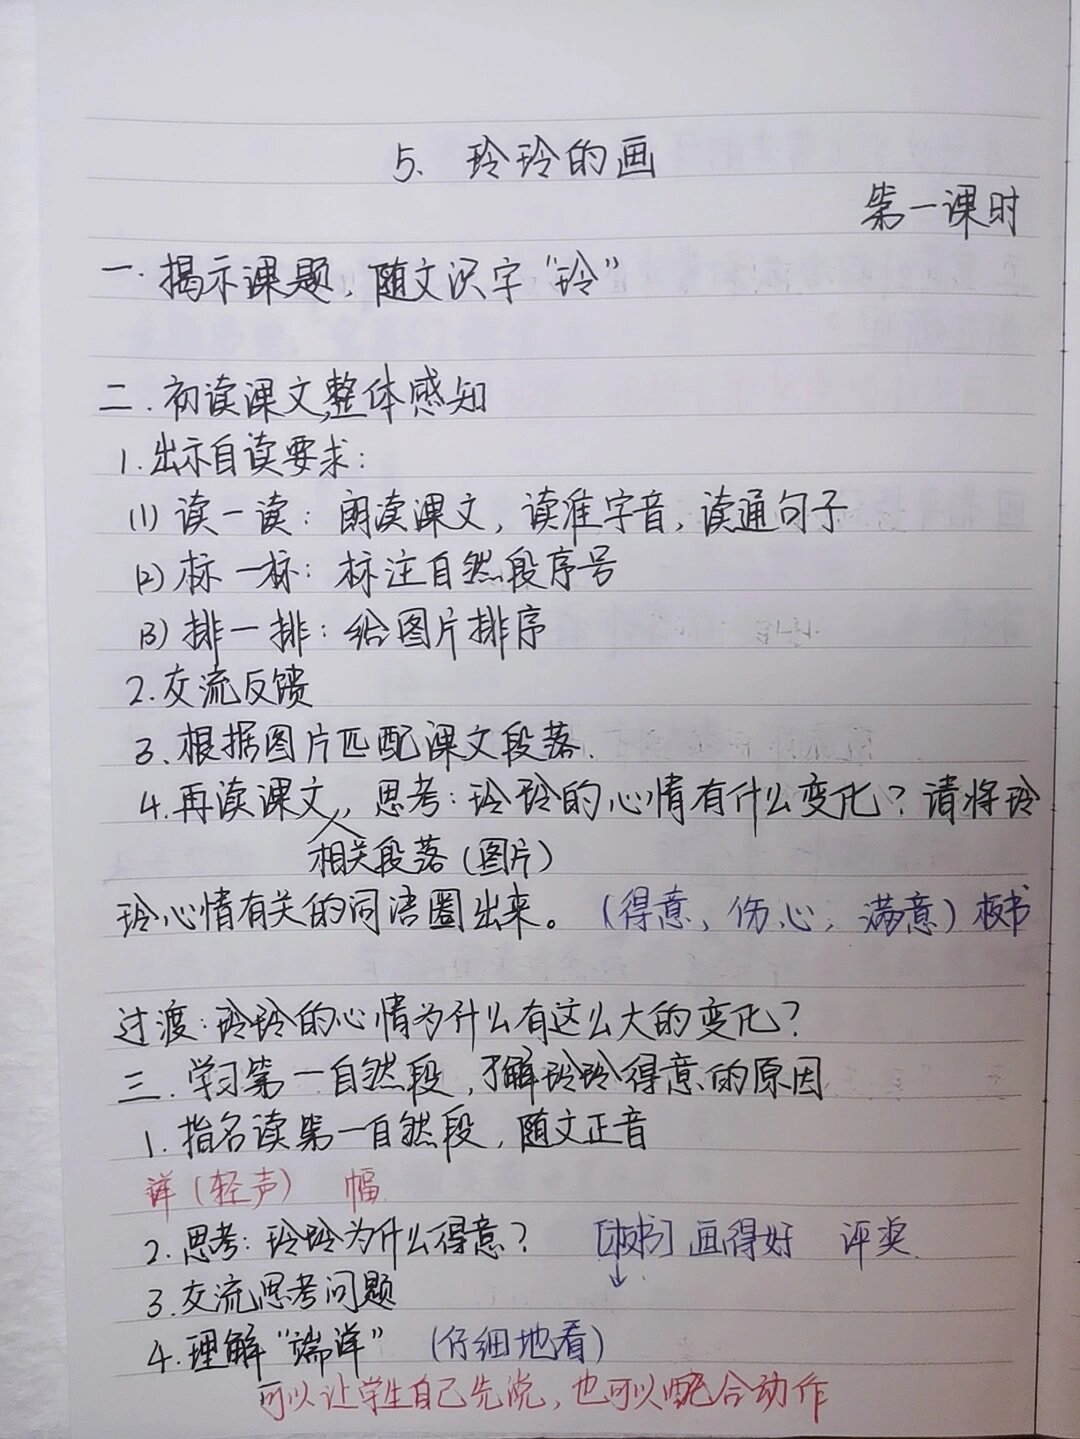 5、玲玲的画
第一课时
一.揭示课题,随文识字“玲”
二.初读课文,整体感知
1.出示自读要求:
(1)读一读:朗读课文,读准字音,读通句子
(2)标一标:标注自然段序号
(3)排一排:给图片排序
2.交流反馈
3.根据图片匹配课文段落.
4.再读课文,思考:玲玲的心情有什么变化?请将玲
相关段落(图片)
玲心情有关的词语圈出来。(得意,伤心,满意)板书
过渡:玲玲的心情为什么有这么大的变化?
三.学习第一自然段,了解玲玲得意的原因
1.指名读第一自然段,随文正音
详(轻声) 幅
2.思考:玲玲为什么得意? [板书]画得好 评奖
↓
3.交流思考问题
4.理解“端详” (仔细地看)
可以让学生自己先说,也可以配合动作